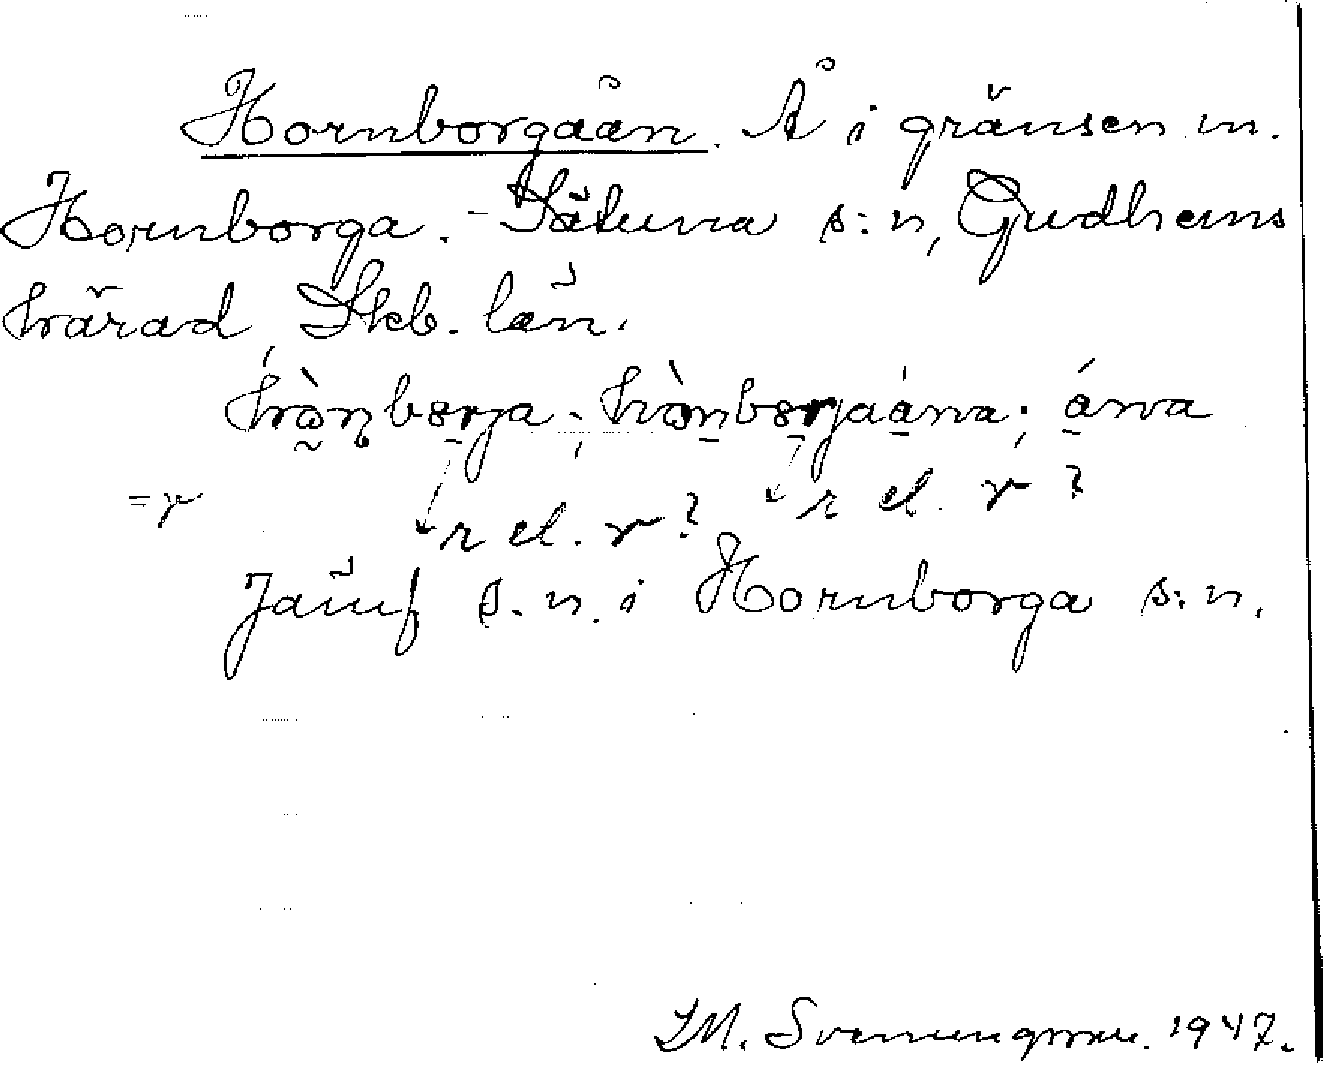 Hornborgaån. Å i gränsen m.
Hornborga. - Sätuna s:n, Gudhems
härad, Skb. län.
hòrnborja; hòrnborjaána; ána
=r
r el. r? r el. r?
Jämf s.n. i Hornborga s:n.
Svenungsson. 1947.